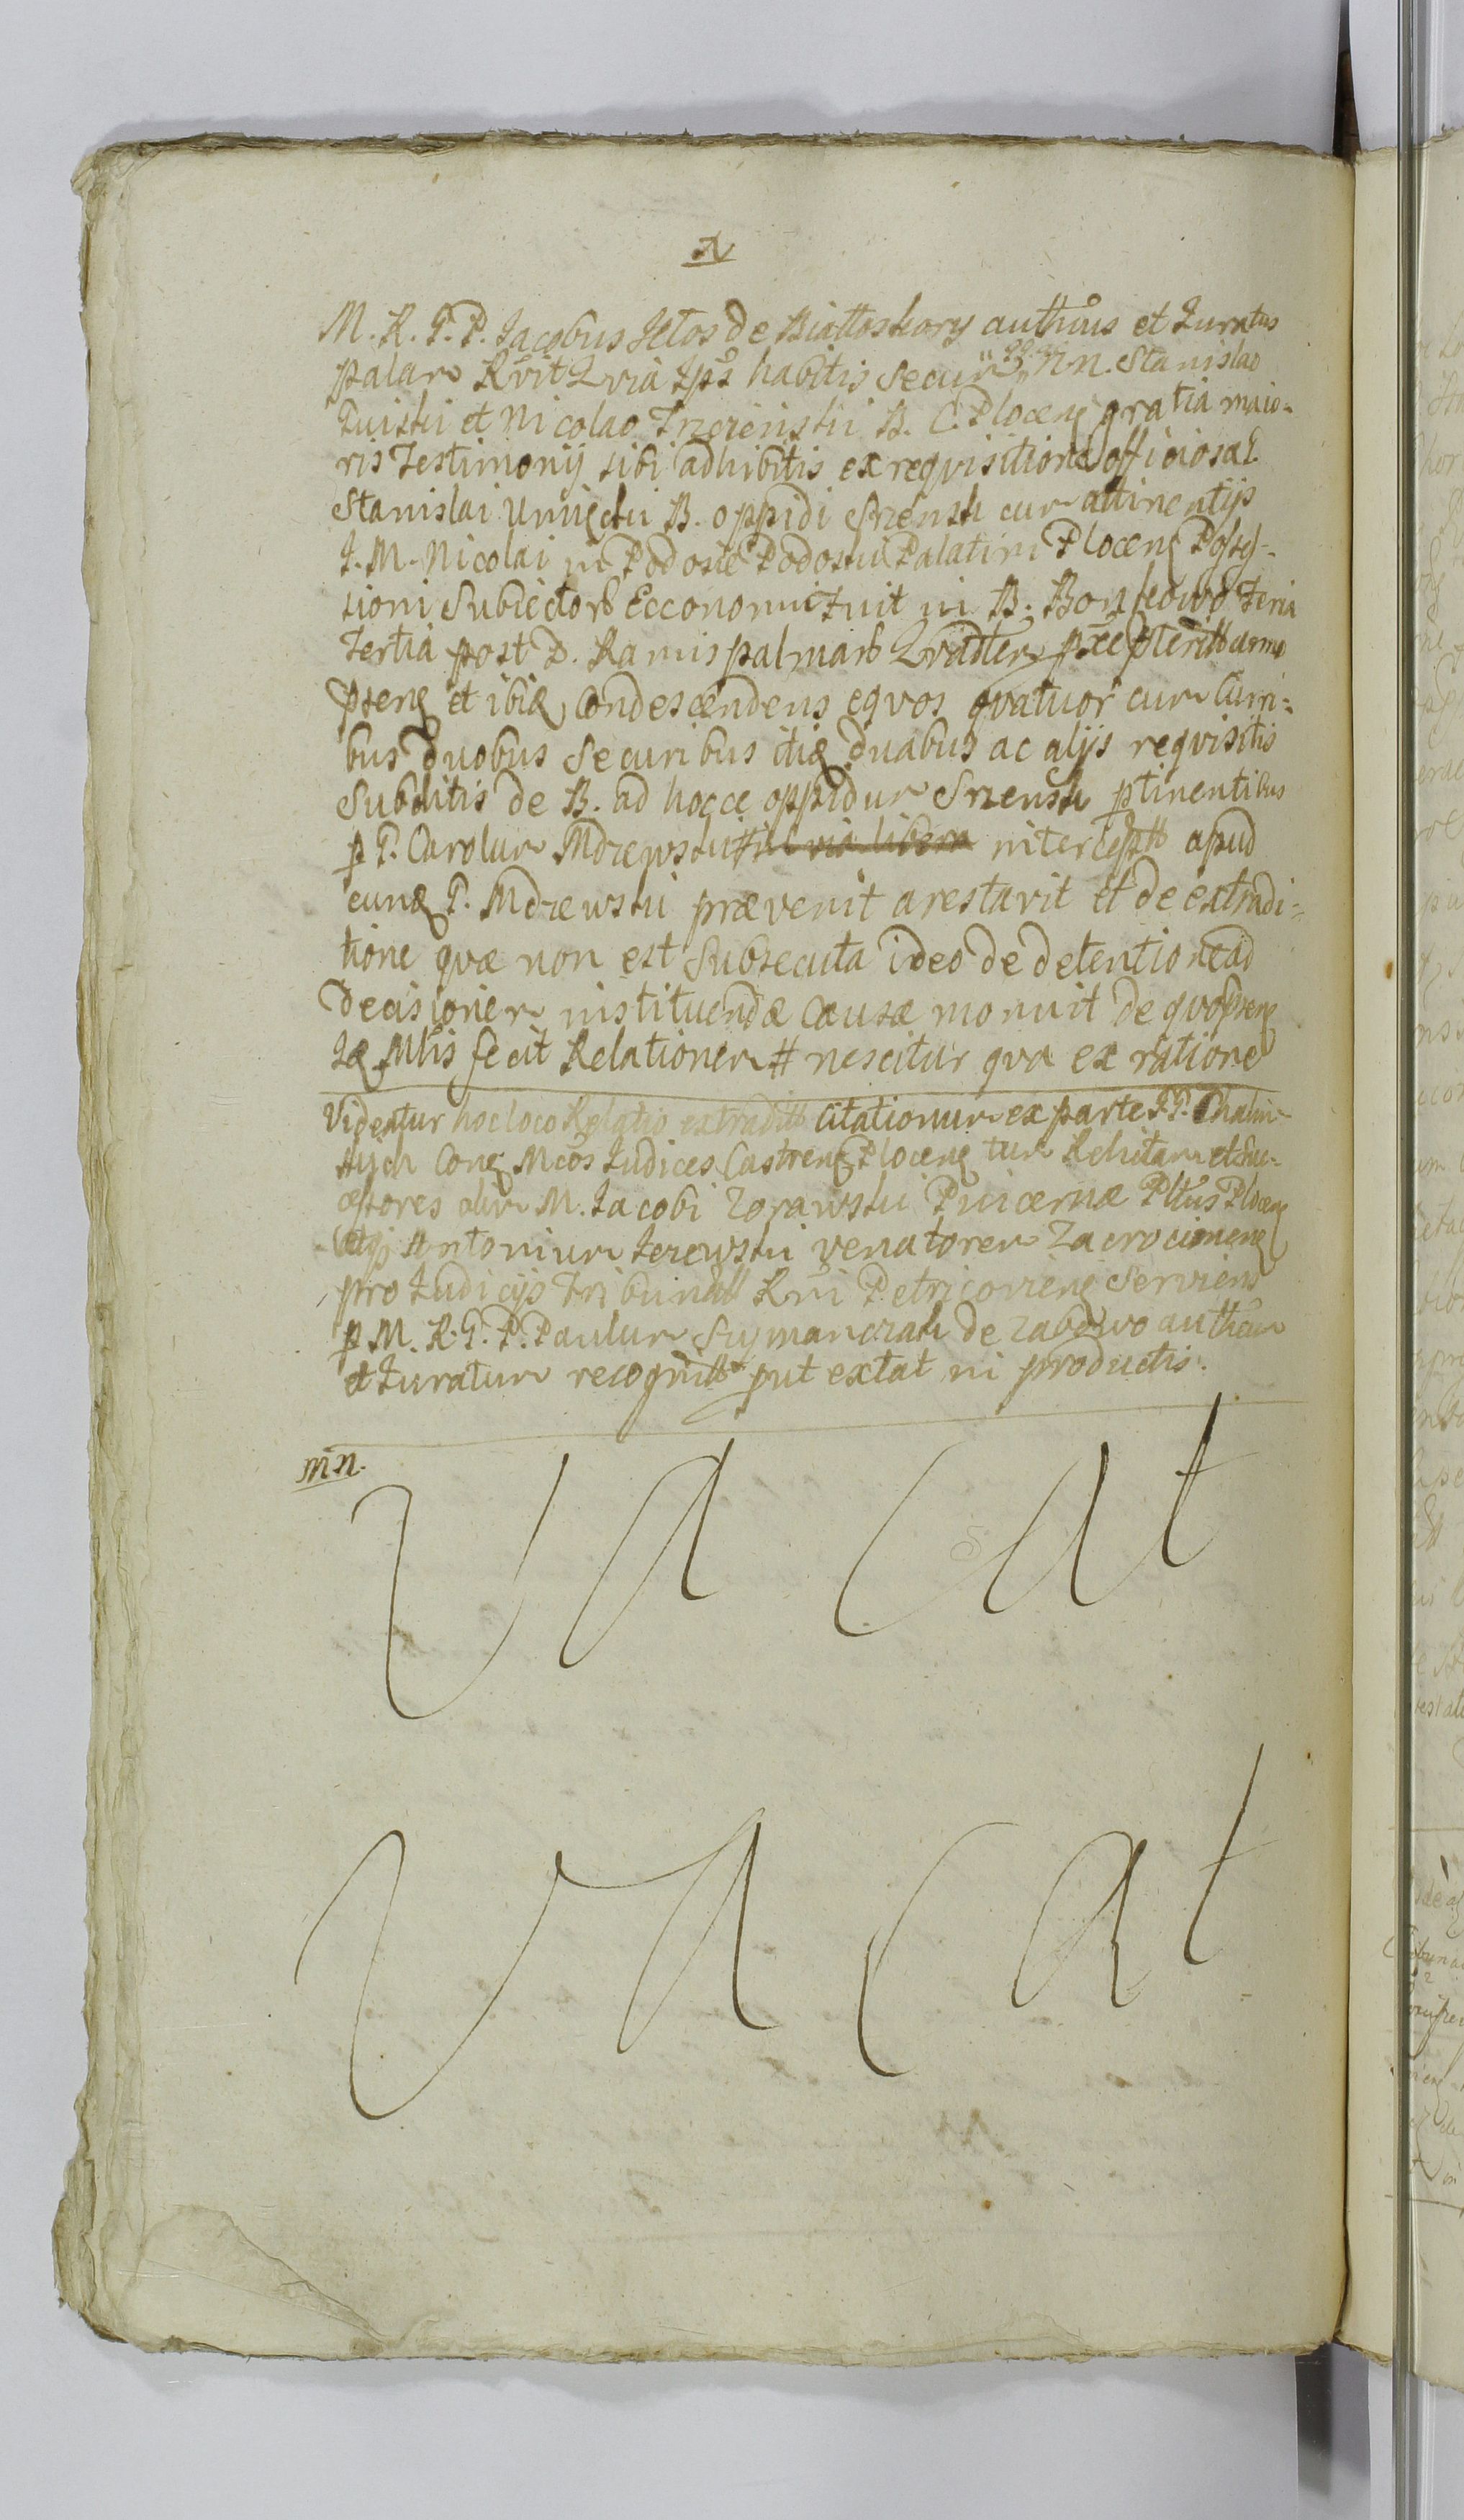 M. R. G. P. Jacobus Jełos de Biattoskory authūs et Juratus
palam Rvit Qvia Ips̃ habitis Secum NN. Stanislao
et Nicolao B. C. Plocen gratia maio-
ris Testimonij sibi adhibitis ex reqvisitione officiosa G.
Stanislai B. oppidi Srzensk cum attinentijs
J. M. Nicolai in Podosie Podoski Palatini Plocen Posses-
sioni Subiectorb Ecconomi fuit in B. Bonsłowo feria
tertia post D. Ramispalmarb anno
psens et ibiq condescendens eqvos qvatuor cum Curri-
bus duobus Securibus itiq duabus ac alijs reqvisitis
Subditis de B. ad hocce oppidum Srzensk ptinentibus
p G. Carolum Mdzewski # in via libera intercept apud
eunq G. Mdzewski prævenit arestavit et de extradi-
tione qvæ non est Subsecuta ideo de detentione ad
Decisionem instituendæ Causæ monuit de qvo psens
Mlis fecit Relationem # nescitur qva ex ratione
Videatur hoc loco Relatio extradit Citationum ex parte GG.
Con Mcos Judices Castren Plocen tum Relictam et Suc-
cessores olim M. Jacobi Zorawski Pincernæ Pltus Plocen
Antonium Jezewski venatorem Zacrocimen
pro Judicijs Tribunall Rni Petricovien Serviens
p M. R. G. P. Paulum Szymanczak de Zabowo authem
et Juratum recognit put extat in productis.
mn.
Vacat
Vacat